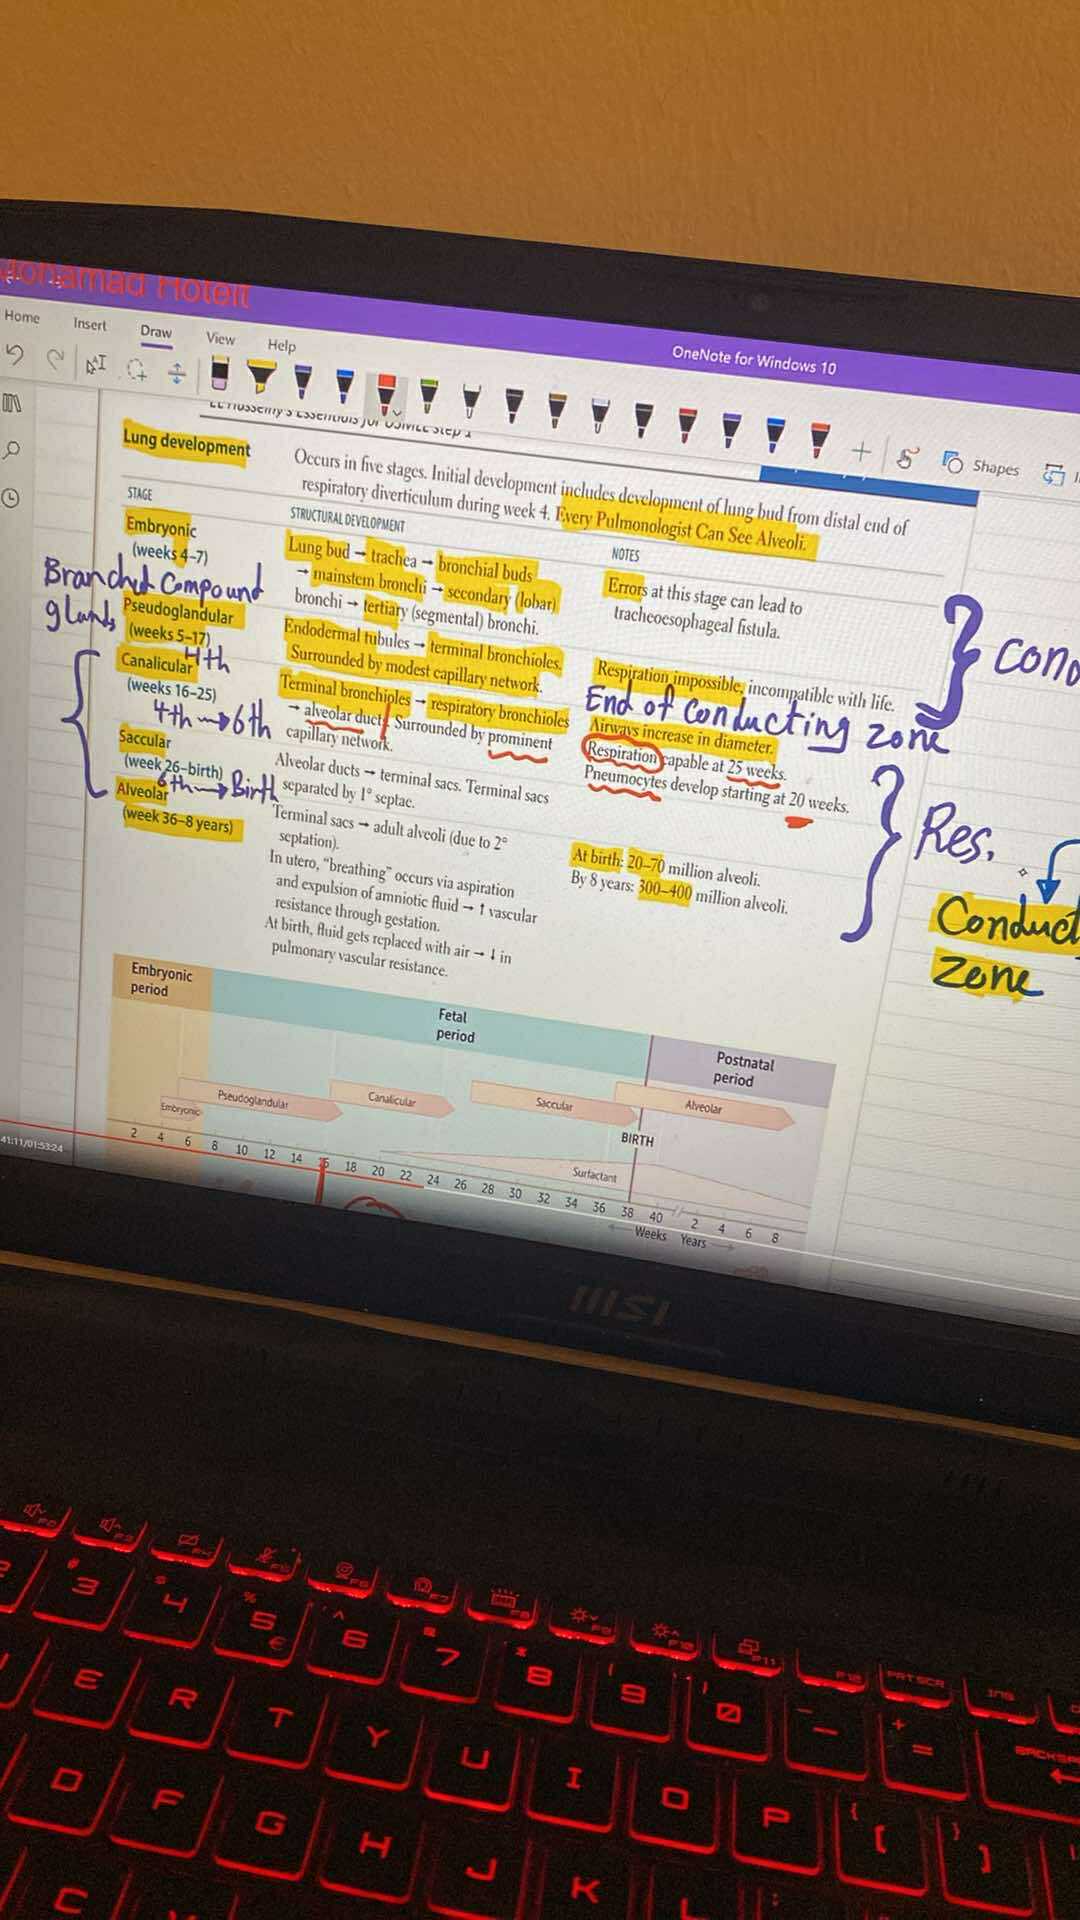 Mohamad Hoteit
OneNote for Windows 10
Home Insert Draw View Help
Shapes
Lung development
Occurs in five stages. Initial development includes development of lung bud from distal end of
respiratory diverticulum during week 4. Every Pulmonologist Can See Alveoli.
STAGE STRUCTURAL DEVELOPMENT NOTES
Embryonic
(weeks 4–7)
Lung bud → trachea → bronchial buds
→ mainstem bronchi → secondary (lobar)
bronchi → tertiary (segmental) bronchi.
Errors at this stage can lead to
tracheoesophageal fistula.
Branched Compound
glands
Pseudoglandular
(weeks 5–17)
Endodermal tubules → terminal bronchioles.
Surrounded by modest capillary network.
Respiration impossible, incompatible with life.
4th
End of conducting zone
Canalicular
(weeks 16–25)
Terminal bronchioles → respiratory bronchioles
→ alveolar duct Surrounded by prominent
capillary network.
Airways increase in diameter.
Respiration capable at 25 weeks.
Pneumocytes develop starting at 20 weeks.
4th → 6th
Saccular
(week 26–birth)
Alveolar ducts → terminal sacs. Terminal sacs
separated by 1° septae.
6th → Birth
Alveolar
(week 36–8 years)
Terminal sacs → adult alveoli (due to 2°
septation).
In utero, “breathing” occurs via aspiration
and expulsion of amniotic fluid → ↑ vascular
resistance through gestation.
At birth, fluid gets replaced with air → ↓ in
pulmonary vascular resistance.
At birth: 20–70 million alveoli.
By 8 years: 300–400 million alveoli.
Cond
Res.
Conduct
Zone
Embryonic
period
Fetal
period
Postnatal
period
Embryonic Pseudoglandular Canalicular Saccular Alveolar
BIRTH
Surfactant
2 4 6 8 10 12 14 16 18 20 22 24 26 28 30 32 34 36 38 40 // 2 4 6 8
Weeks Years
41:11/01:53:24
msi
F6 F7 F8 F9 F10 F11 F12 PRT SCR INS
# 3 $ 4 % 5 € ^ 6 & 7 * 8 ( 9 ) 0 _ - + =
E R T Y U I O P { [ } ]
D F G H J K L :
C